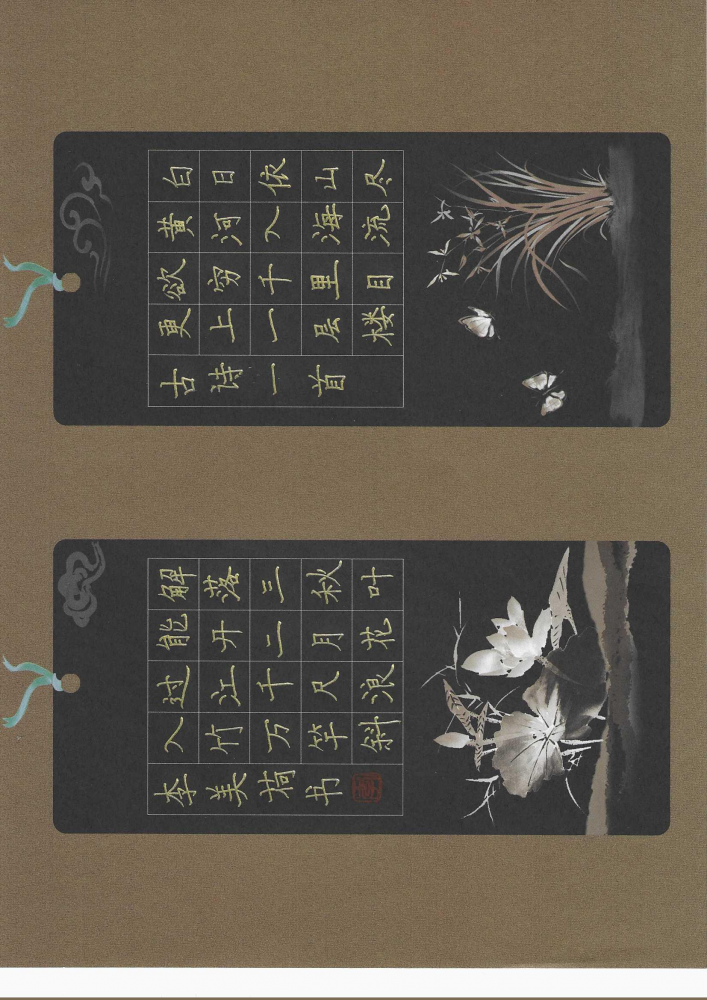 白日依山尽
黄河入海流
欲穷千里目
更上一层楼
古诗一首
解落三秋叶
能开二月花
过江千尺浪
入竹万竿斜
李美荷书